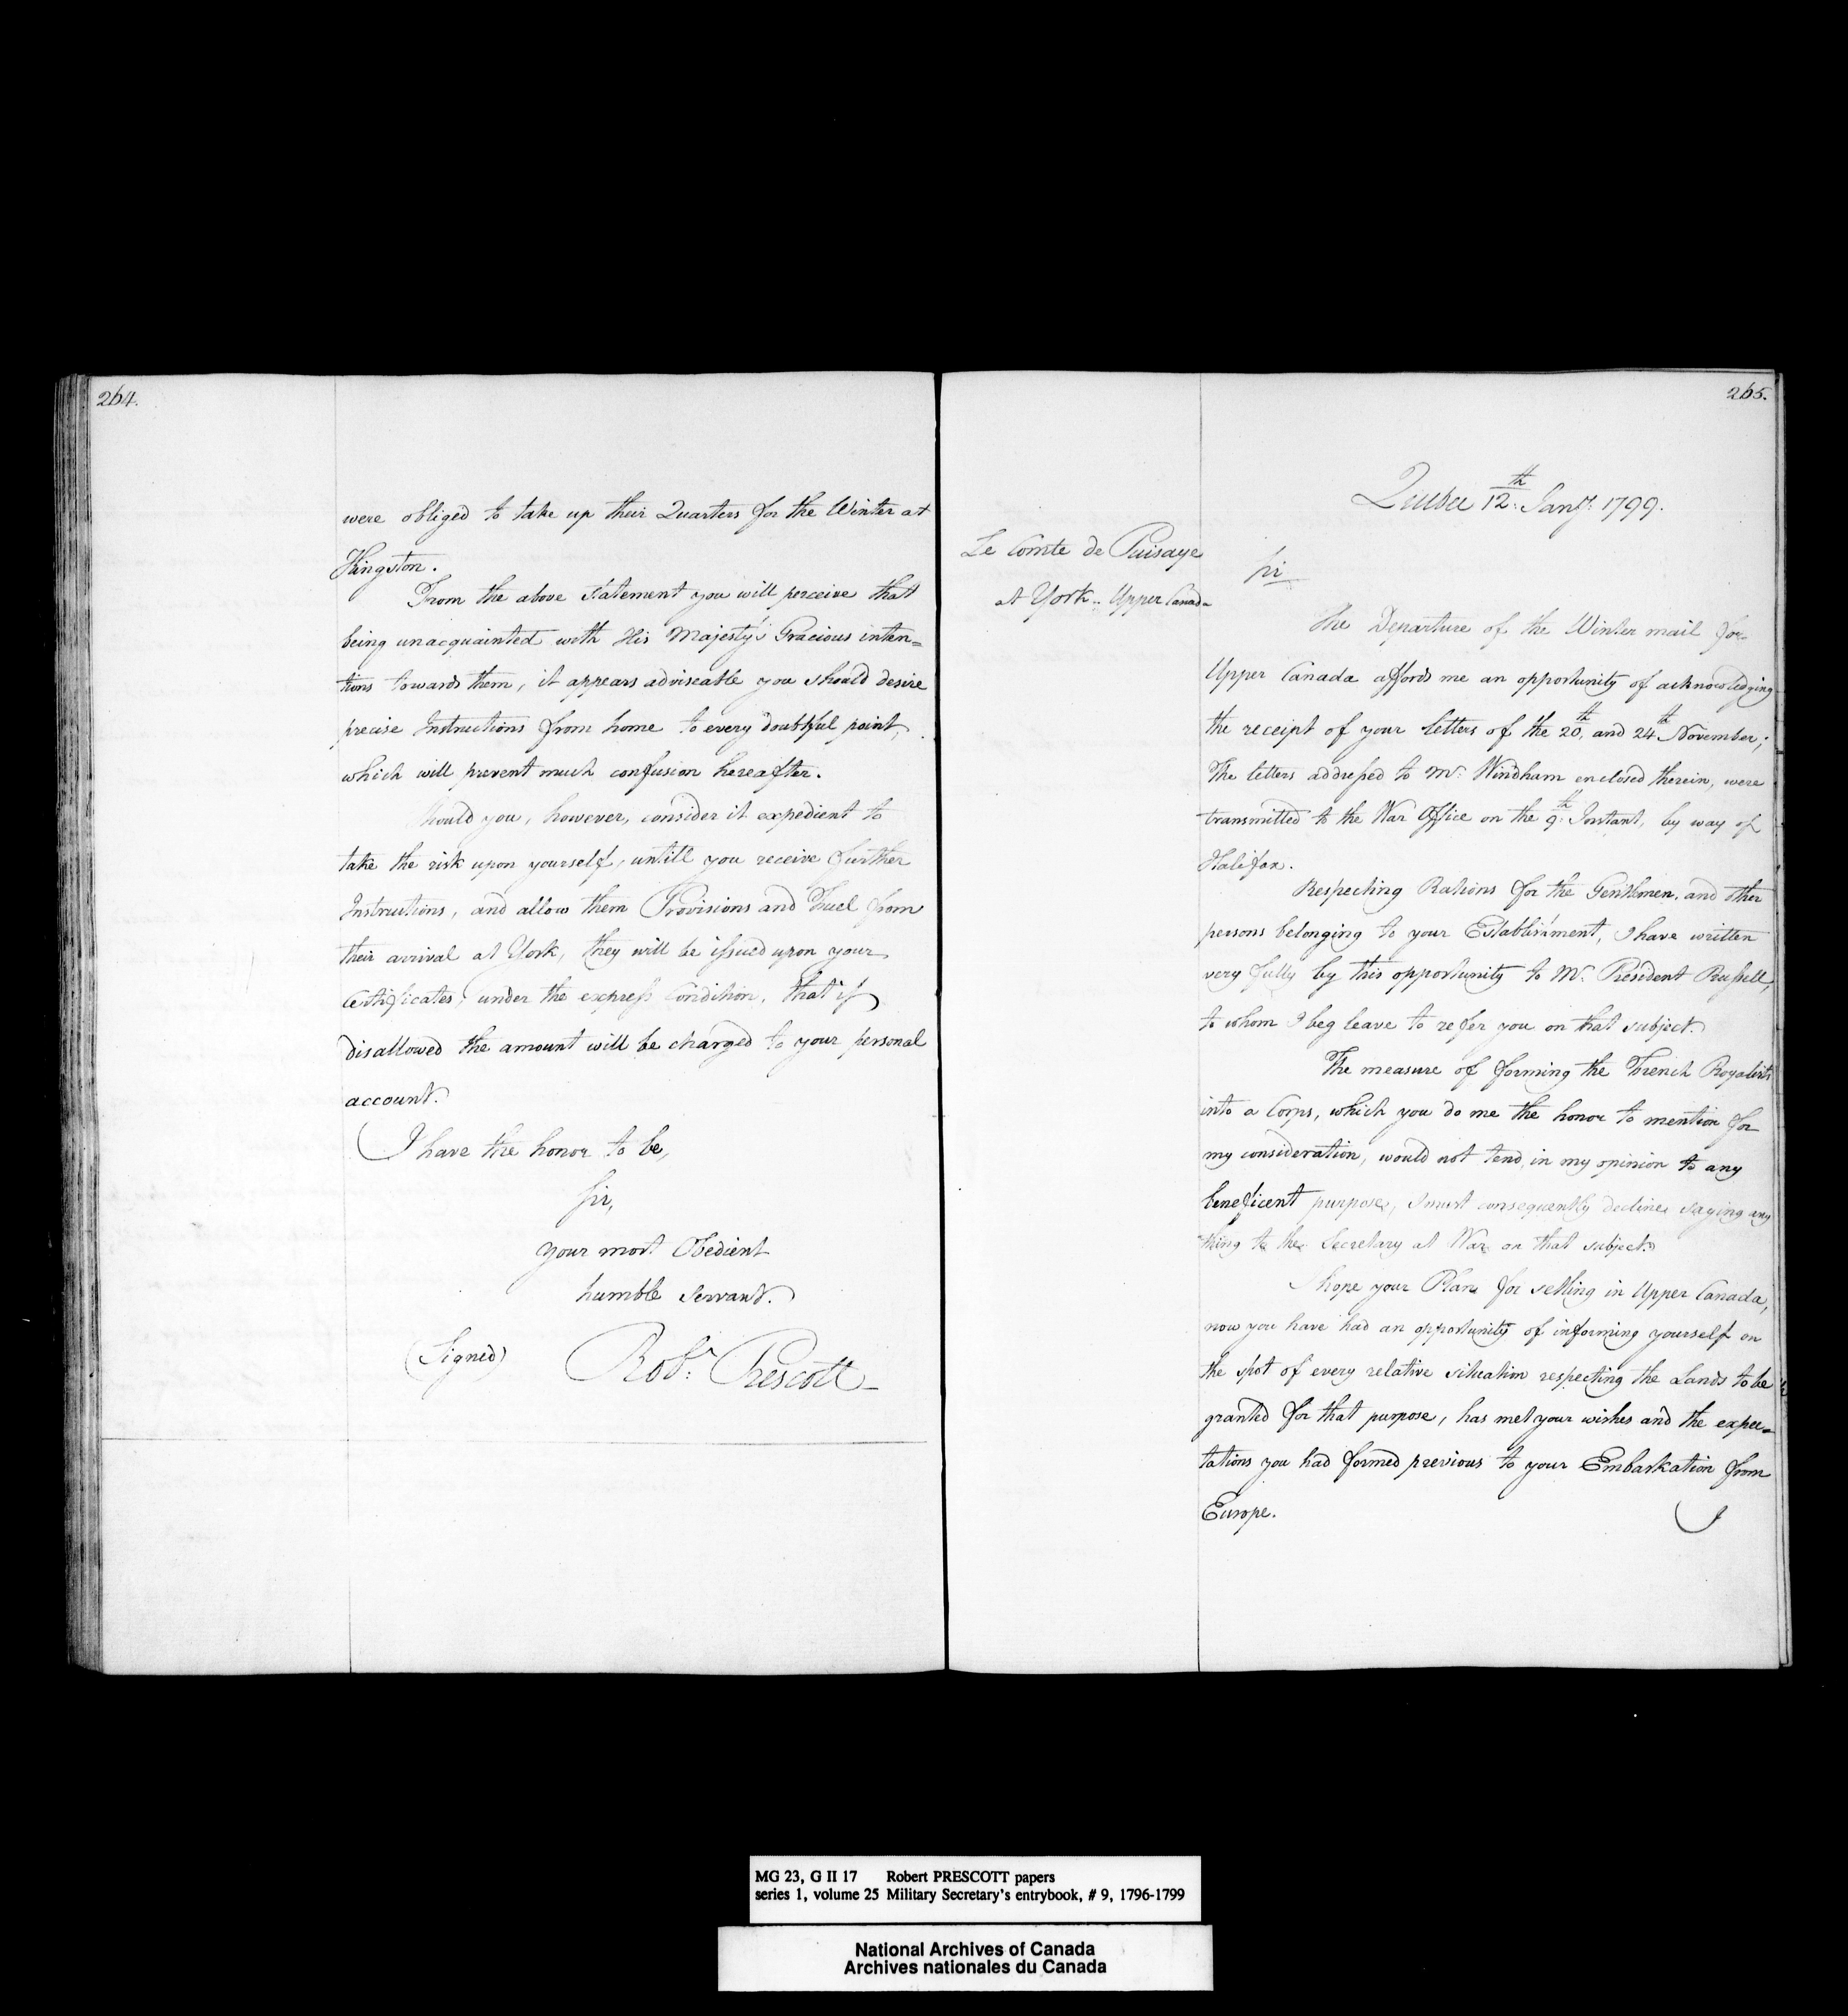 264.
were obliged to take up their Quarters for the Winter at
Kingston.
From the above Statement you will perceive that
being unacquainted with His Majesty's Gracious inten=
tions towards them, it appears adviseable you should desire
precise Instructions from home to every doubtful point,
which will prevent much confusion hereafter.
Should you, however, consider it expedient to
take the risk upon yourself, untill you receive further
Instructions, and allow them Provisions and Fuel from
their arrival at York, they will be issued upon your
Certificates, under the express Condition, that if
disallowed the amount will be charged to your personal
account.
I have the honor to be,
Sir,
your most Obedient
humble Servant.
(Signed) Robt. Prescott
265.
Quebec 12th. Jany. 1799.
Le Comte de Puisaye
at York.. Upper Canada
Sir
The Departure of the Winter mail for
Upper Canada affords me an opportunity of acknowledging
the receipt of your letters of the 20th, and 24th November;
The letters addressed to Mr. Windham enclosed therein, were
transmitted to the War Office on the 9th. Instant, by way of
Halifax.
Respecting Rations for the Gentlemen, and other
persons belonging to your Establishment, I have written
very fully by this opportunity to Mr. President Russell,
to whom I beg leave to refer you on that subject.
The measure of forming the French Royalists
into a Corps, which you do me the honor to mention for
my consideration, would not tend, in my opinion to any
beneficent purpose, I must consequently decline saying any
thing to the Secretary at War on that subject.
I hope your Plan for settling in Upper Canada,
now you have had an opportunity of informing yourself on
the spot of every relative situation respecting the Lands to be
granted for that purpose, has met your wishes and the expec=
tations you had formed previous to your Embarkation from
Europe.
I
MG 23, G II 17 Robert PRESCOTT papers
series 1, volume 25 Military Secretary's entrybook, # 9, 1796-1799
National Archives of Canada
Archives nationales du Canada